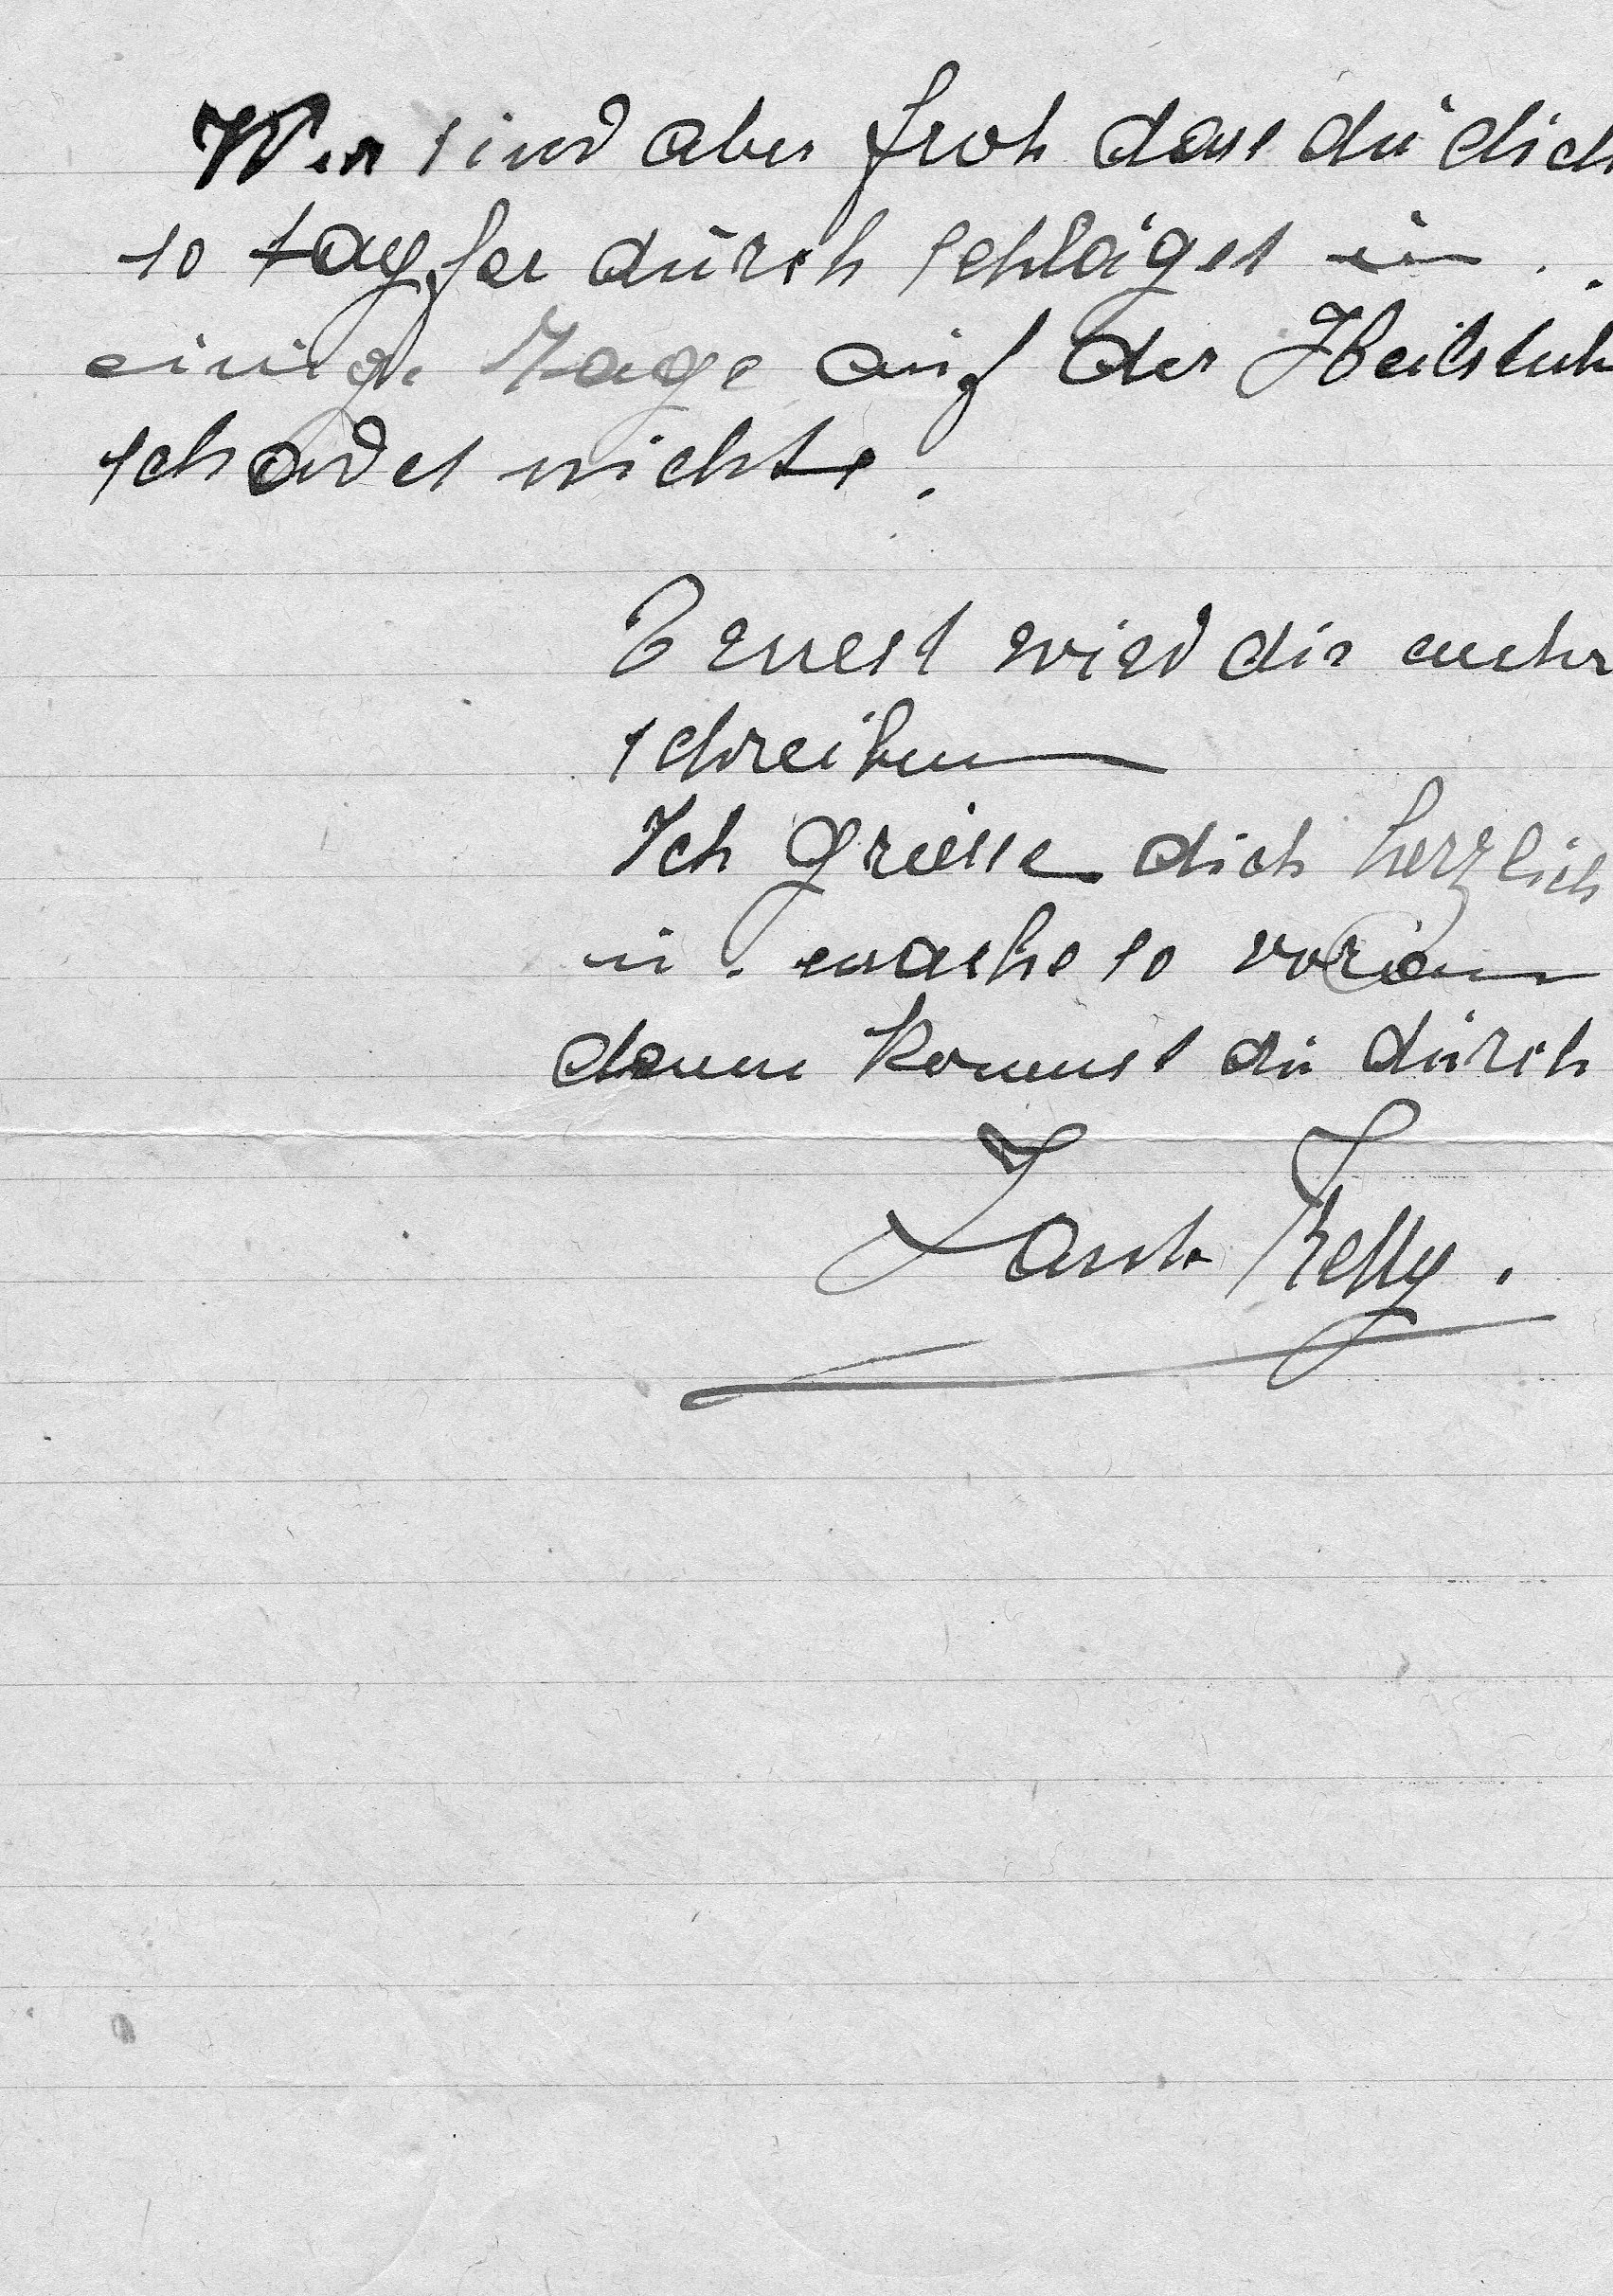 Wir sind aber froh dass du dich
so tapfer durch schlägst u.
einige Tage auf der Heilstub
schadet nichts.
Ernest wird dir mehr
schreiben
Ich grüsse dich herzlich
u. mache so voran
dann kommst du durch
Tante Kelly.